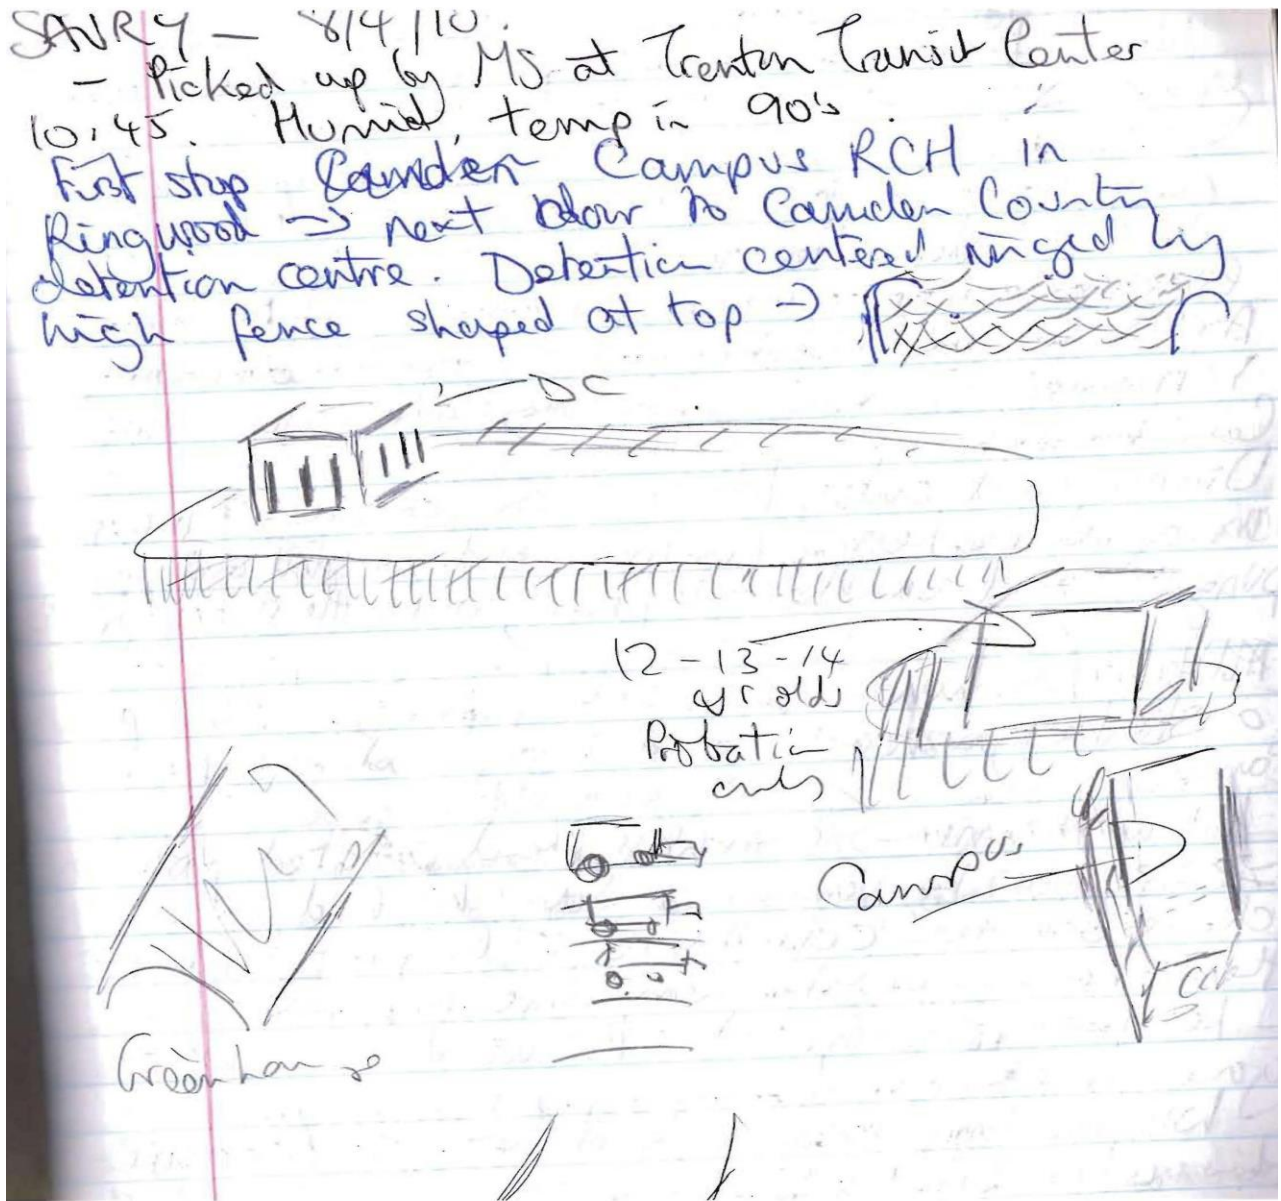 SAVRY – 8/4/10.
– Picked up by MS at Trenton Transit Center
10.45. Humid, temp in 90's.
First stop Camden Campus RCH in
Ringwood → next door to Camden County
detention centre. Detention centered ringed by
high fence shaped at top →
DC
12-13-14
yr olds
Probation
only
Campus
Greenhouse